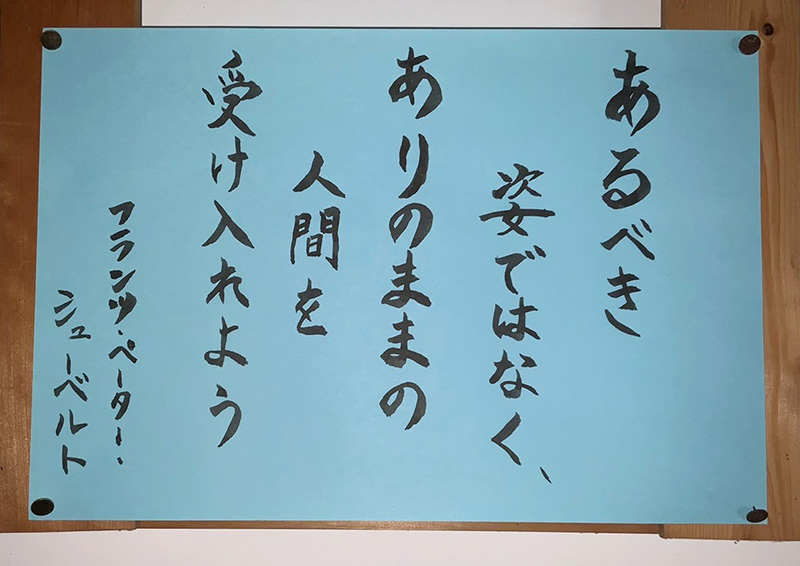 あるべき
姿ではなく、
ありのままの
人間を
受け入れよう
フランツ・ペーター・
シューベルト